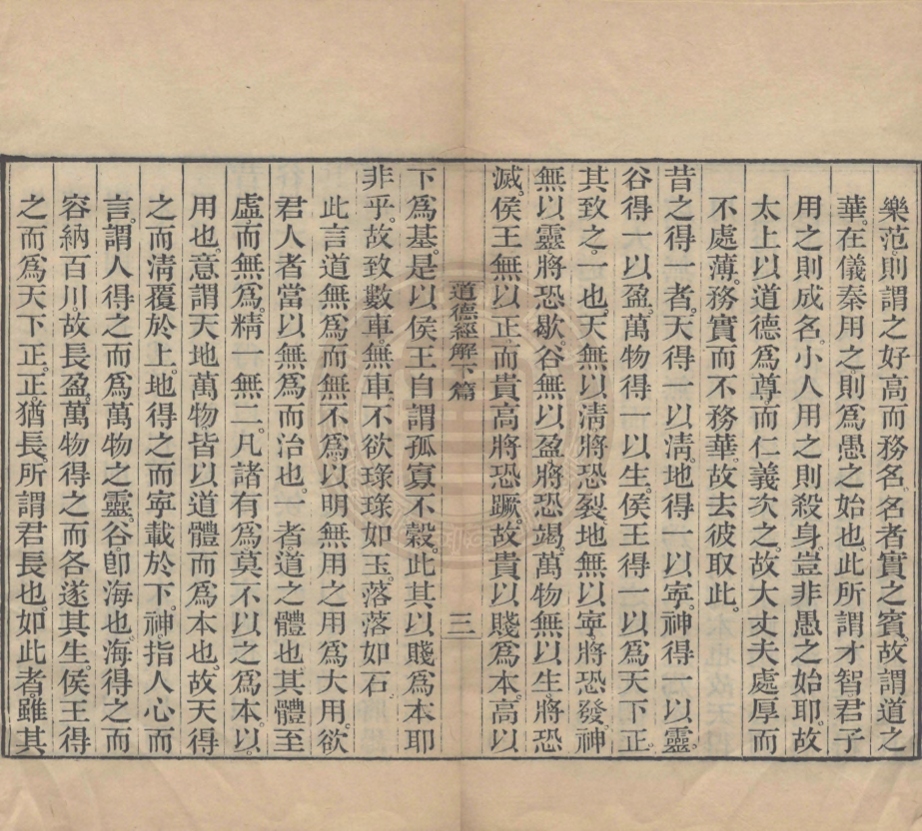 樂范。則謂之好高而務名。名者實之賓。故謂道之
華。在儀秦用之。則爲愚之始也。此所謂才智君子
用之則成名。小人用之則殺身。豈非愚之始耶。故
太上以道德爲尊。而仁義次之。故大丈夫處厚而
不處薄。務實而不務華。故去彼取此。
昔之得一者。天得一以淸。地得一以寧。神得一以靈。
谷得一以盈。萬物得一以生。侯王得一以爲天下正。
其致之一也。天無以淸將恐裂。地無以寧將恐發。神
無以靈將恐歇。谷無以盈將恐竭。萬物無以生。將恐
滅。侯王無以正。而貴高將恐蹶。故貴以賤爲本。高以
道德經解下篇
三
下爲基。是以侯王自謂孤寡不穀。此其以賤爲本耶
非乎。故致數車。無車。不欲琭琭如玉。落落如石。
此言道無爲而無不爲。以明無用之用爲大用。欲
君人者當以無爲而治也。一者。道之體也。其體至
虛而無爲。精一無二。凡諸有爲。莫不以之爲本。以
用也。意謂天地萬物。皆以道體而爲本也。故天得
之而淸覆於上。地得之而寧載於下。神。指人心而
言。謂人得之而爲萬物之靈。谷。卽海也。海得之而
容納百川。故長盈。萬物得之而各遂其生。侯王得
之而爲天下正。正。猶長。所謂君長也。如此者。雖其